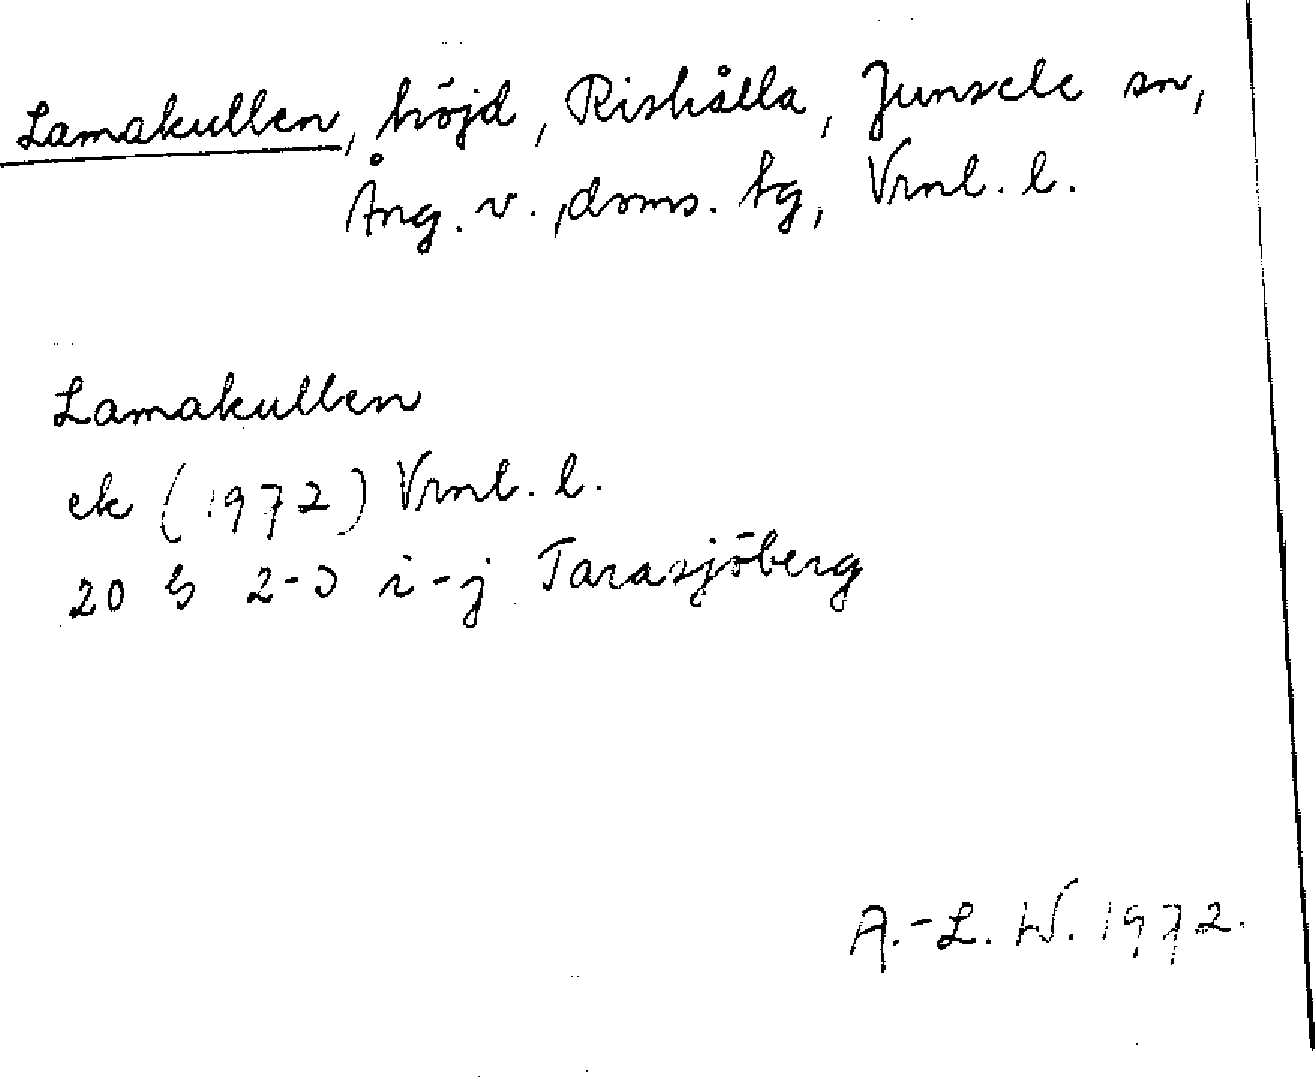 Lamakullen, höjd, Rishålla, Junsele sn,
Ång. v., doms. tg, Vrnl. l.
Lamakullen
ek (1972) Vrnl. l.
20 G 2-3 i-j Tarasjöberg
A.-L. W. 1972.